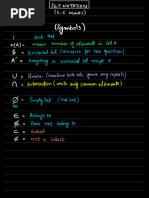 SET NOTATION
(3-5 Marks)
(Symbols)
: Such that
n(A) = means number of elements in set A
ξ = Universal Set (Universe for the question)
A' = Everything in universal set except A
U = Union (combine both sets ignore any repeats)
∩ = Intersection (write only common elements)
∅ = Empty Set (Null Set)
∈ = Belongs to
∉ = Does not belong to
⊂ = Subset
⊄ = not a Subset